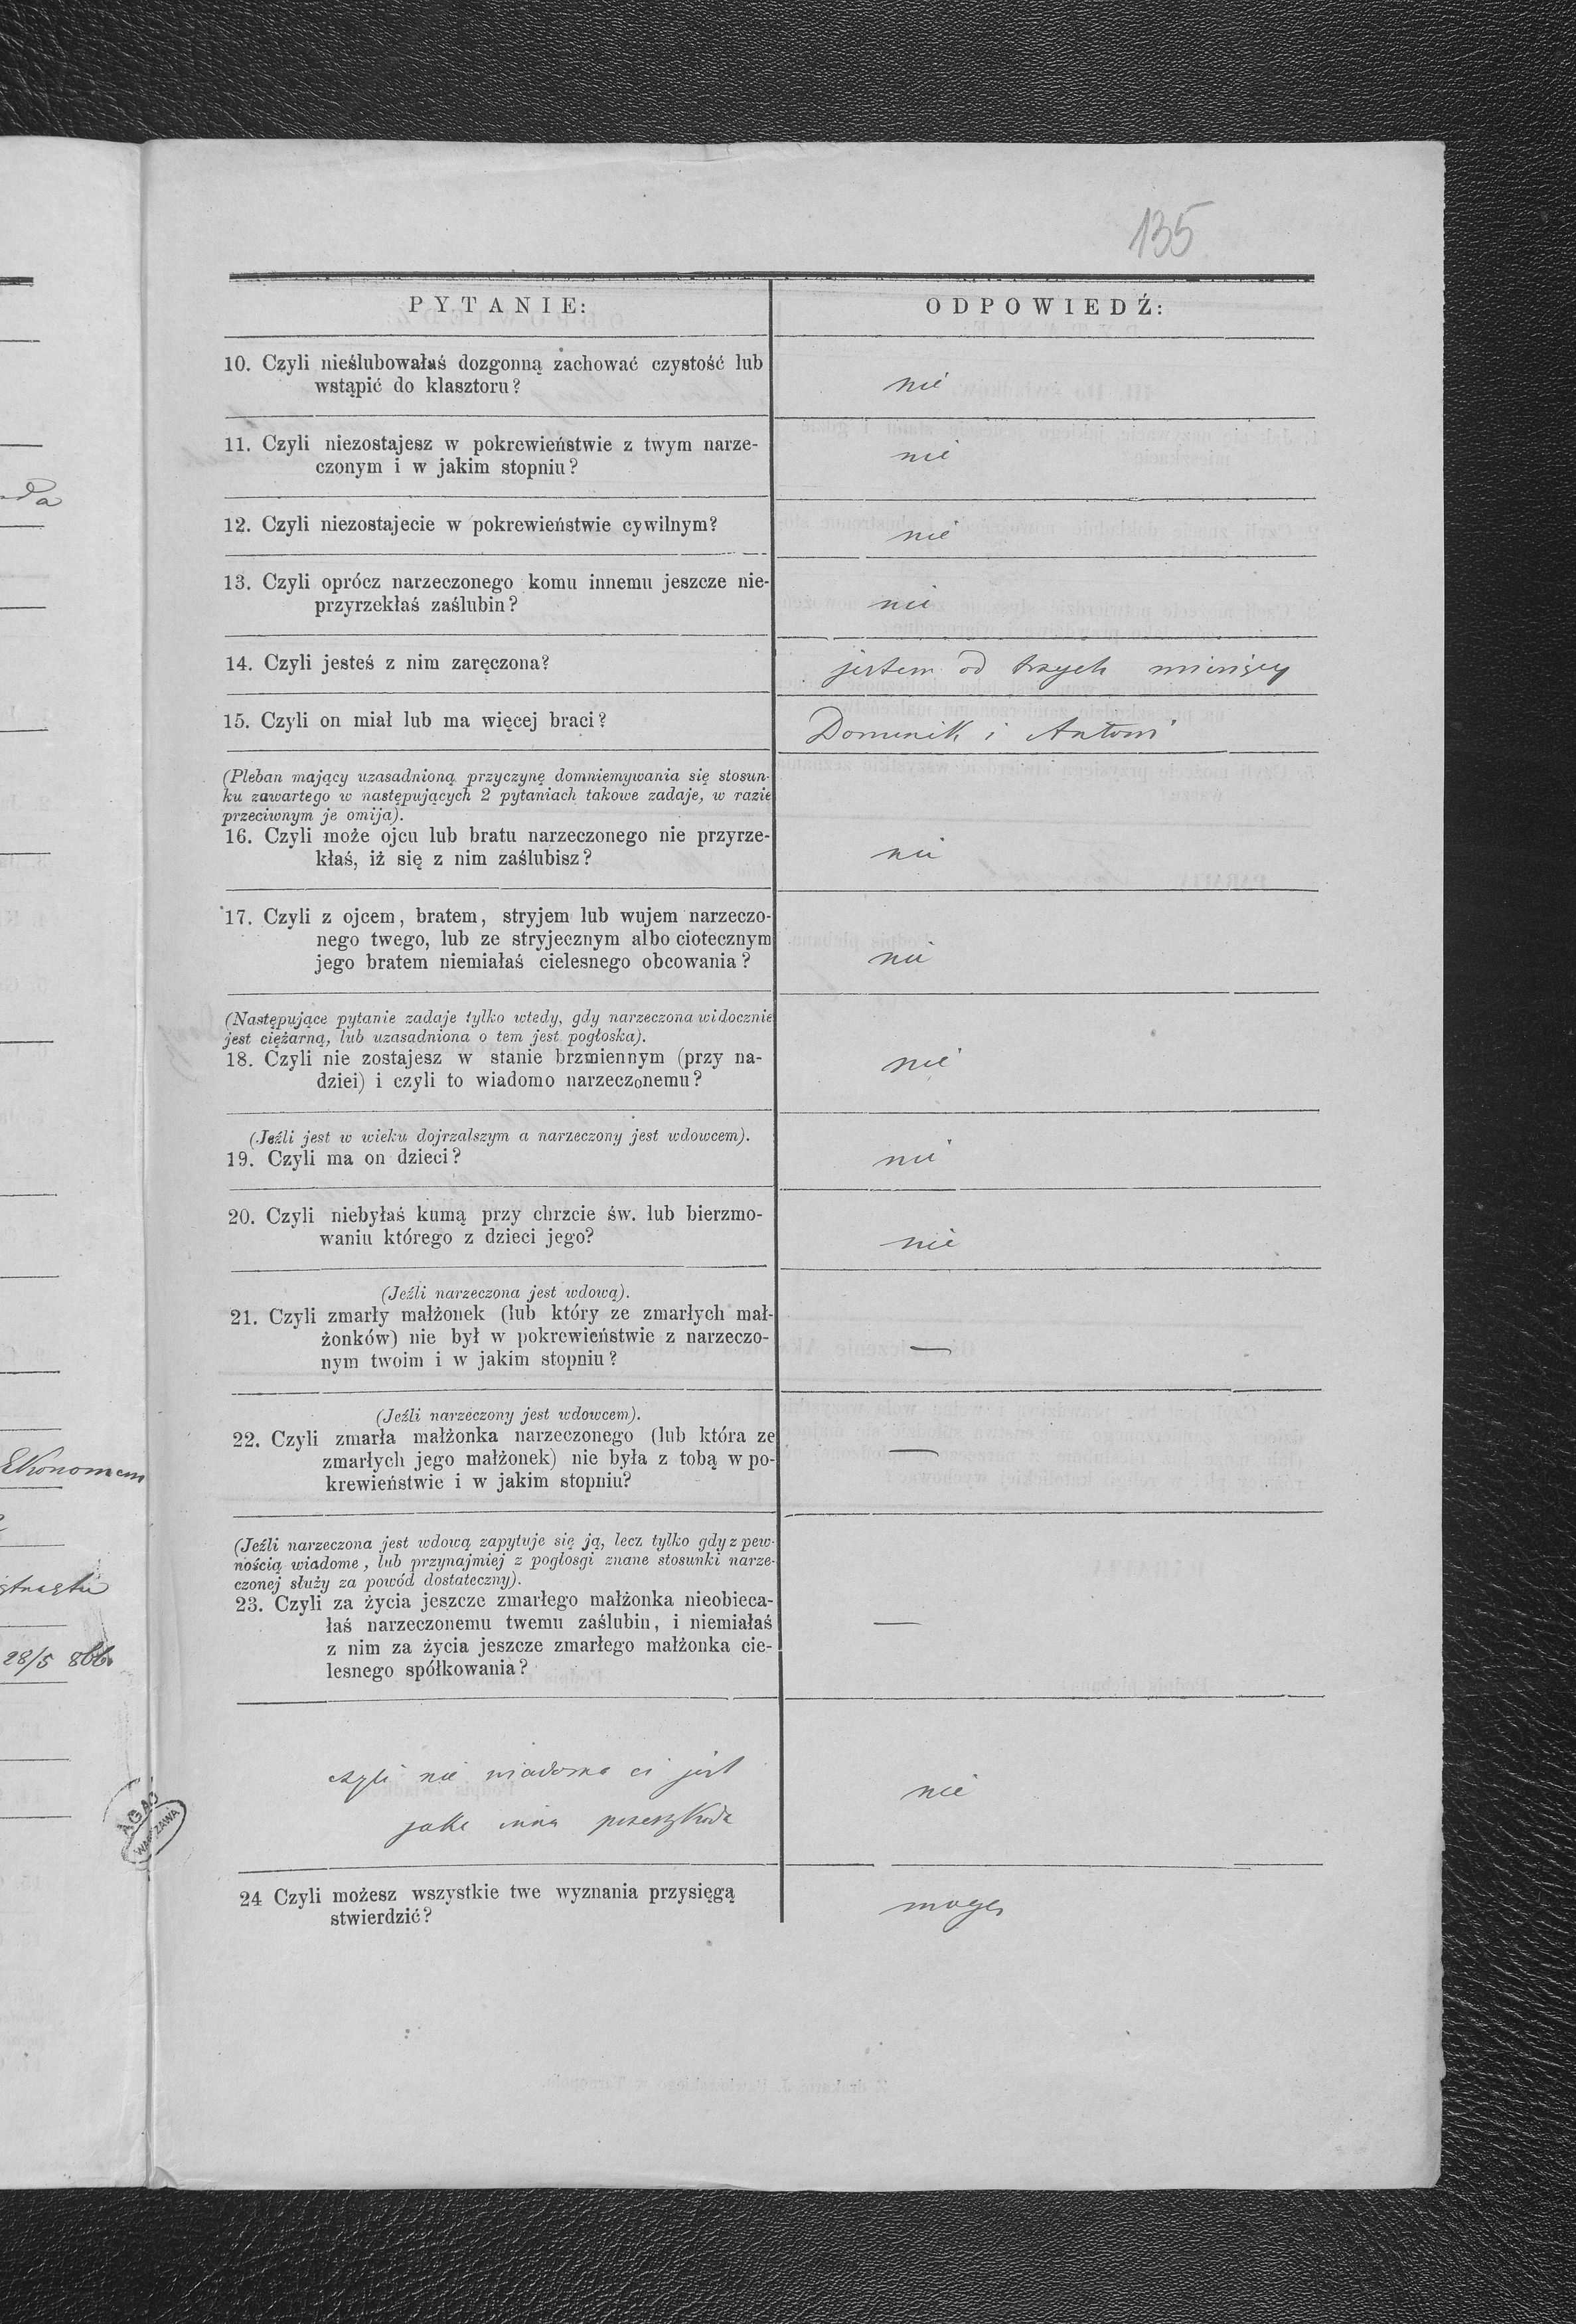 135
PYTANIE:
ODPOWIEDŹ:
10. Czyli nieślubowałaś dozgonną zachować czystość lub
wstąpić do klasztoru?
nie
11. Czyli niezostajesz w pokrewieństwie z twym narze-
czonym i w jakim stopniu?
nie
12. Czyli niezostajecie w pokrewieństwie cywilnym?
nie
13. Czyli oprócz narzeczonego komu innemu jeszcze nie-
przyrzekłaś zaślubin?
nie
14. Czyli jesteś z nim zaręczona?
jestem od trzech miesięcy
15. Czyli on miał lub ma więcej braci?
Dominik i Antoni
(Pleban mający uzasadnioną przyczynę domniemywania się stosun-
ku zawartego w następujących 2 pytaniach takowe zadaje, w razie
przeciwnym je omija).
16. Czyli może ojcu lub bratu narzeczonego nie przyrze-
kłaś, iż się z nim zaślubisz?
nie
17. Czyli z ojcem, bratem, stryjem lub wujem narzeczo-
nego twego, lub ze stryjecznym albo ciotecznym
jego bratem niemiałaś cielesnego obcowania?
nie
(Następujące pytanie zadaje tylko wtedy, gdy narzeczona widocznie
jest ciężarną, lub uzasadniona o tem jest pogłoska).
18. Czyli nie zostajesz w stanie brzmiennym (przy na-
dziei) i czyli to wiadomo narzeczonemu?
nie
(Jeźli jest w wieku dojrzalszym a narzeczony jest wdowcem).
19. Czyli ma on dzieci?
nie
20. Czyli niebyłaś kumą przy chrzcie św. lub bierzmo-
waniu którego z dzieci jego?
nie
(Jeźli narzeczona jest wdową).
21. Czyli zmarły małżonek (lub który ze zmarłych mał-
żonków) nie był w pokrewieństwie z narzeczo-
nym twoim i w jakim stopniu?
—
(Jeźli narzeczony jest wdowcem).
22. Czyli zmarła małżonka narzeczonego (lub która ze
zmarłych jego małżonek) nie była z tobą w po-
krewieństwie i w jakim stopniu?
—
(Jeźli narzeczona jest wdową zapytuje się ją, lecz tylko gdy z pew-
nością wiadome, lub przynajmiej z pogłosgi znane stosunki narze-
czonej służy za powód dostateczny).
23. Czyli za życia jeszcze zmarłego małżonka nieobieca-
łaś narzeczonemu twemu zaślubin, i niemiałaś
z nim za życia jeszcze zmarłego małżonka cie-
lesnego spółkowania?
—
czyli nie wiadoma ci jest
jaka inna przeszkoda
nie
24 Czyli możesz wszystkie twe wyznania przysięgą
stwierdzić?
mogę
Ekonomem
28/5 866
AGAD
WARSZAWA